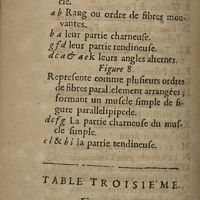 cle.
ab Rang ou ordre de fibres mou-
vantes.
ba leur partie charneuse.
gfd leur partie tendineuse.
dca & aek leurs angles alternes.
Figure 8.
Represente comme plusieurs ordres
de fibres parallelement arrangées;
forment un muscle simple de fi-
gure parallelipipede.
dcfg La partie charneuse du mus-
cle simple.
el & bi la partie tendineuse.
TABLE TROISIE'ME.